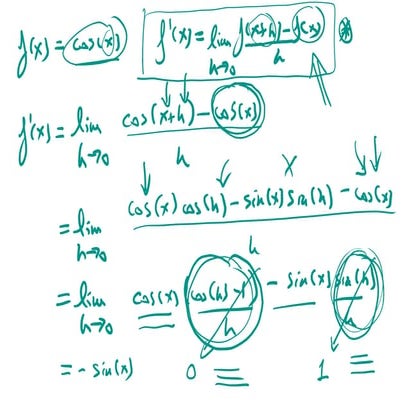 f(x) = cos(x)
f'(x) = lim h→0 (f(x+h) - f(x))/h
f'(x) = lim h→0 (cos(x+h) - cos(x))/h
= lim h→0 (cos(x) cos(h) - sin(x) sin(h) - cos(x))/h
= lim h→0 cos(x) (cos(h) - 1)/h - sin(x) sin(h)/h
= - sin(x) 0 1